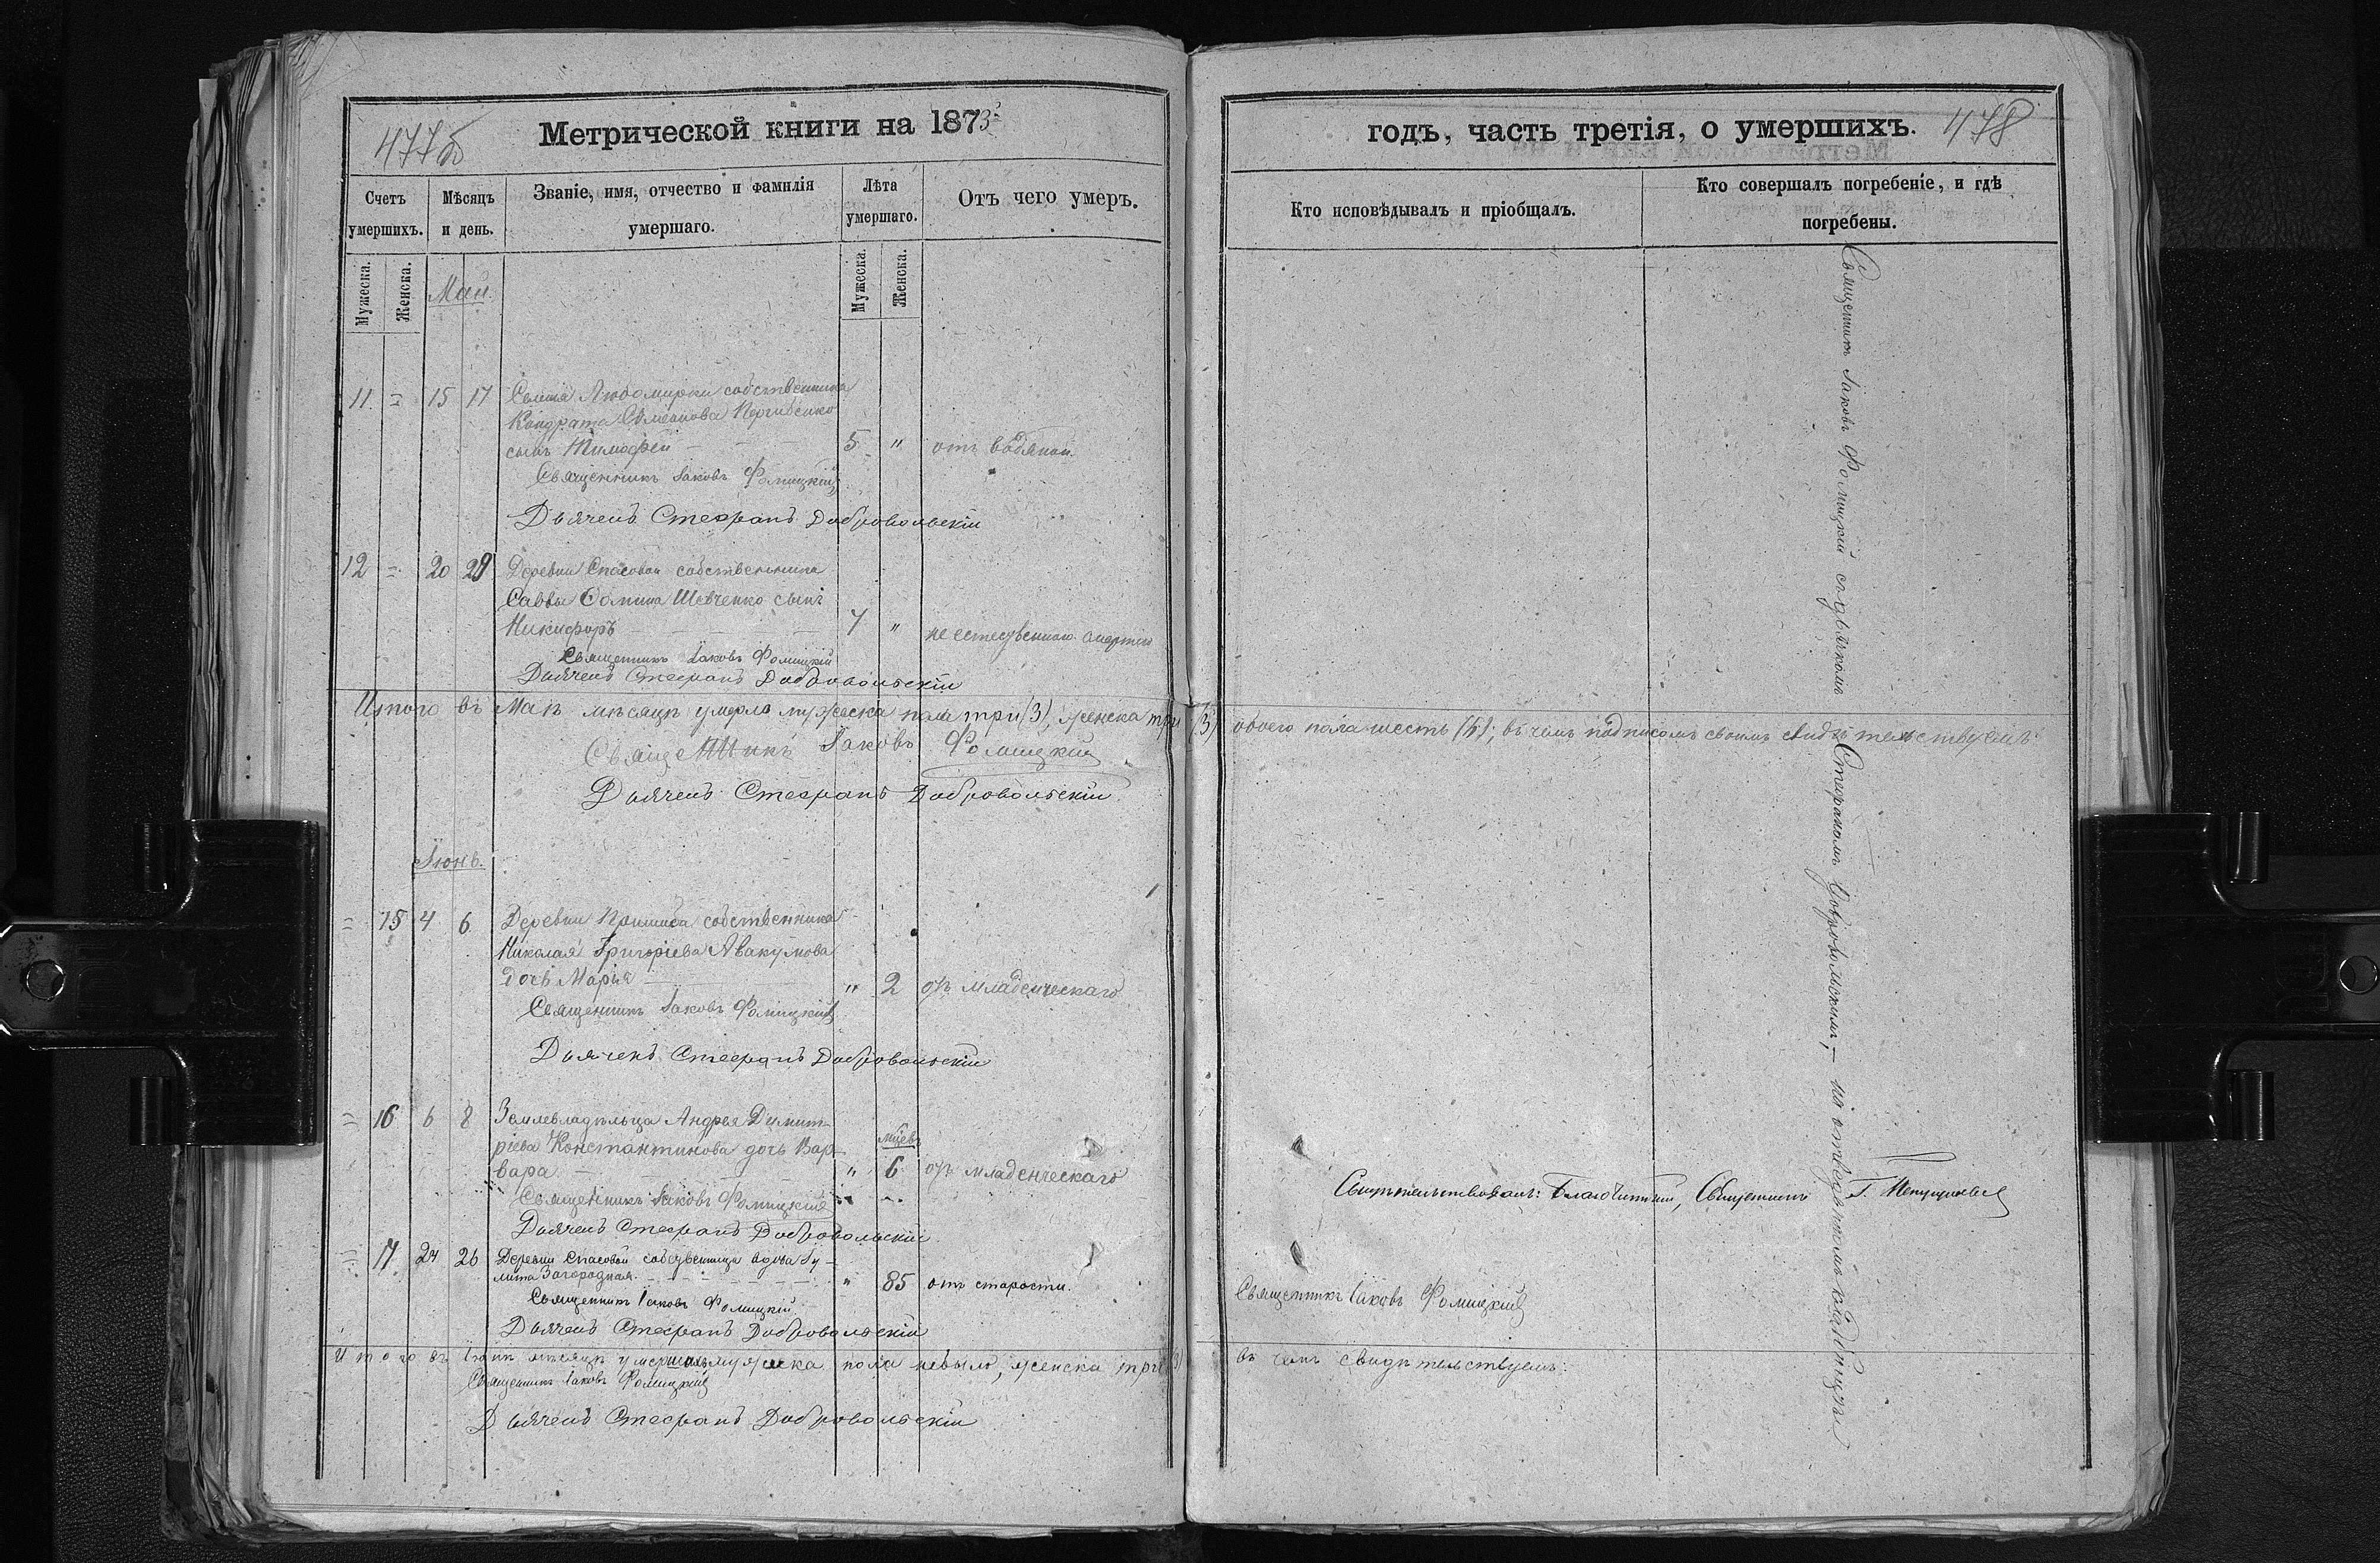 477б
Метрической книги на 1873
Счетъ умершихъ.
Мѣсяцъ и день.
Званіе, имя, отчество и фамилія
умершаго.
Лѣта
умершаго.
Отъ чего умеръ.
Мужеска.
Женска.
Май.
Мужеска.
Женска.
11 = 15 17 Селенія Любомирки собственника
Кондрата Симеонова
сынъ Тимофей 5 " отъ водяной
Священникъ Іаковъ Фомицкій
Дьячекъ Стефанъ Добровольскій
12 = 20 29 Деревни Спасовой собственника
Саввы Фомина Шевченко сынъ
Никифоръ 7 " не естественною смертію
Священникъ Іаковъ Фомицкій
Дьячекъ Стефанъ Добровольскій
Итого въ Маѣ мѣсяцѣ умерло мужеска пола три (3), женска три (3)
Священникъ Іаковъ Фомицкій
Дьячекъ Стефанъ Добровольскій
Іюнь.
= 15 4 6 Деревни собственника
Николая Григоріева Авакумова
дочь Марія " 2 отъ младенческаго
Священникъ Іаковъ Фомицкій
Дьячекъ Стефанъ Добровольскій
= 16 6 8 Землевладѣльца Андрея Димит-
ріева Константинова дочь Вар- мцевъ
вара " 6 отъ младенческаго
Священникъ Іаковъ Фомицкій
Дьячекъ Стефанъ Добровольскій
= 17 24 26 Деревни Спасовой собственница вдова Іу-
лита Загородная " 85 отъ старости.
Священникъ Іаковъ Фомицкій
Дьячекъ Стефанъ Добровольскій
Итого въ Іюнѣ мѣсяцѣ умершихъ мужеска пола небыло, женска три (3)
Священникъ Іаковъ Фомицкій
Дьячекъ Стефанъ Добровольскій
годъ, часть третія, о умершихъ.
478
Кто исповѣдывалъ и пріобщалъ.
Кто совершалъ погребеніе, и гдѣ
погребены.
Священникъ Іаковъ Фомицкій съ дьячкомъ Стефаномъ Добровольскимъ, — на отведенномъ кладбищѣ
обоего пола шесть (6); въ чемъ подписомъ своимъ свидѣтельствуемъ
Свидѣтельствовалъ: Благочинный, Священникъ Г.
Священникъ Іаковъ Фомицкій
въ чемъ свидѣтельствуемъ: